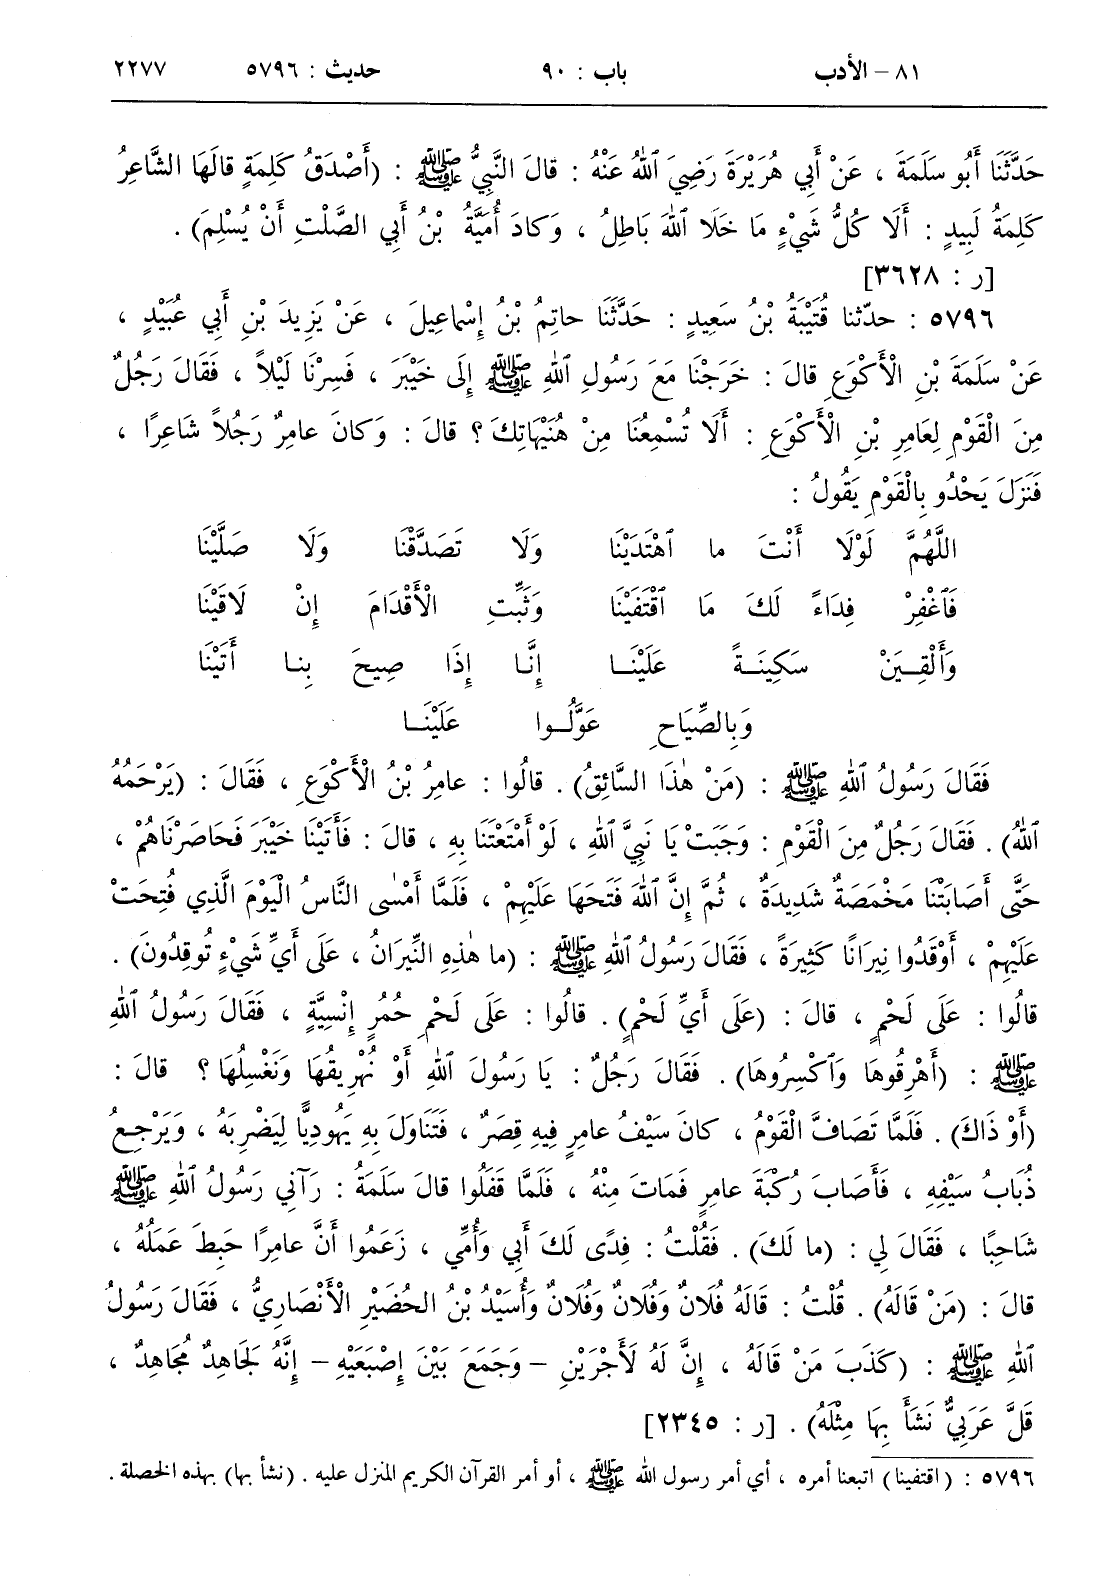 ٨١ – الأدب باب : ٩٠ حديث : ٥٧٩٦ ٢٢٧٧
حَدَّثَنَا أَبُو سَلَمَةَ ، عَنْ أَبِي هُرَيْرَةَ رَضِيَ ٱللهُ عَنْهُ : قالَ النَّبِيُّ ﷺ : (أَصْدَقُ كَلِمَةٍ قالَهَا الشَّاعِرُ
كَلِمَةُ لَبِيدٍ : أَلَا كُلُّ شَيْءٍ مَا خَلَا ٱللهَ بَاطِلُ ، وَكادَ أُمَيَّةُ بْنُ أَبِي الصَّلْتِ أَنْ يُسْلِمَ) .
[ر : ٣٦٢٨]
٥٧٩٦ : حدّثنا قُتَيْبَةُ بْنُ سَعِيدٍ : حَدَّثَنَا حاتِمُ بْنُ إِسْماعِيلَ ، عَنْ يَزِيدَ بْنِ أَبِي عُبَيْدٍ ،
عَنْ سَلَمَةَ بْنِ الْأَكْوَعِ قالَ : خَرَجْنَا مَعَ رَسُولِ ٱللهِ ﷺ إِلَى خَيْبَرَ ، فَسِرْنَا لَيْلاً ، فَقَالَ رَجُلٌ
مِنَ الْقَوْمِ لِعَامِرِ بْنِ الْأَكْوَعِ : أَلَا تُسْمِعُنَا مِنْ هُنَيْهَاتِكَ ؟ قالَ : وَكانَ عامِرٌ رَجُلاً شَاعِرًا ،
فَنَزَلَ يَحْدُو بِالْقَوْمِ يَقُولُ :
اللَّهُمَّ لَوْلَا أَنْتَ ما ٱهْتَدَيْنَا وَلَا تَصَدَّقْنَا وَلَا صَلَّيْنَا
فَٱغْفِرْ فِدَاءً لَكَ مَا ٱقْتَفَيْنَا وَثَبِّتِ الْأَقْدَامَ إِنْ لَاقَيْنَا
وَأَلْقِـيَنْ سَكِينَـةً عَلَيْنَـا إِنَّـا إِذَا صِيحَ بِنـا أَتَيْنَا
وَبِالصِّيَاحِ عَوَّلُـوا عَلَيْنَـا
فَقَالَ رَسُولُ ٱللهِ ﷺ : (مَنْ هٰذَا السَّائِقُ) . قالُوا : عامِرُ بْنُ الْأَكْوَعِ ، فَقَالَ : (يَرْحَمُهُ
ٱللهُ) . فَقَالَ رَجُلٌ مِنَ الْقَوْمِ : وَجَبَتْ يَا نَبِيَّ ٱللهِ ، لَوْ أَمْتَعْتَنَا بِهِ ، قالَ : فَأَتَيْنَا خَيْبَرَ فَحَاصَرْنَاهُمْ ،
حَتَّى أَصَابَتْنَا مَخْمَصَةٌ شَدِيدَةٌ ، ثُمَّ إِنَّ ٱللهَ فَتَحَهَا عَلَيْهِمْ ، فَلَمَّا أَمْسٰى النَّاسُ الْيَوْمَ الَّذِي فُتِحَتْ
عَلَيْهِمْ ، أَوْقَدُوا نِيرَانًا كَثِيرَةً ، فَقَالَ رَسُولُ ٱللهِ ﷺ : (ما هٰذِهِ النِّيرَانُ ، عَلَى أَيِّ شَيْءٍ تُوقِدُونَ) .
قالُوا : عَلَى لَحْمٍ ، قالَ : (عَلَى أَيِّ لَحْمٍ) . قالُوا : عَلَى لَحْمِ حُمُرٍ إِنْسِيَّةٍ ، فَقَالَ رَسُولُ ٱللهِ
ﷺ : (أَهْرِقُوهَا وَٱكْسِرُوهَا) . فَقَالَ رَجُلٌ : يَا رَسُولَ ٱللهِ أَوْ نُهْرِيقُهَا وَنَغْسِلُهَا ؟ قالَ :
(أَوْ ذَاكَ) . فَلَمَّا تَصَافَّ الْقَوْمُ ، كانَ سَيْفُ عامِرٍ فِيهِ قِصَرٌ ، فَتَنَاوَلَ بِهِ يَهُودِيًّا لِيَضْرِبَهُ ، وَيَرْجِعُ
ذُبَابُ سَيْفِهِ ، فَأَصَابَ رُكْبَةَ عامِرٍ فَمَاتَ مِنْهُ ، فَلَمَّا قَفَلُوا قالَ سَلَمَةُ : رَآنِي رَسُولُ ٱللهِ ﷺ
شَاحِبًا ، فَقَالَ لِي : (ما لَكَ) . فَقُلْتُ : فِدًى لَكَ أَبِي وَأُمِّي ، زَعَمُوا أَنَّ عامِرًا حَبِطَ عَمَلُهُ ،
قالَ : (مَنْ قالَهُ) . قُلْتُ : قالَهُ فُلَانٌ وَفُلَانٌ وَفُلَانٌ وَأُسَيْدُ بْنُ الحُضَيْرِ الْأَنْصَارِيُّ ، فَقَالَ رَسُولُ
ٱللهِ ﷺ : (كَذَبَ مَنْ قالَهُ ، إِنَّ لَهُ لَأَجْرَيْنِ – وَجَمَعَ بَيْنَ إِصْبَعَيْهِ – إِنَّهُ لَجَاهِدٌ مُجَاهِدٌ ،
قَلَّ عَرَبِيٌّ نَشَأَ بِهَا مِثْلَهُ) . [ر : ٢٣٤٥]
٥٧٩٦ : (اقتفينا) اتبعنا أمره ، أي أمر رسول الله ﷺ ، أو أمر القرآن الكريم المنزل عليه . (نشأ بها) بهذه الخصلة .